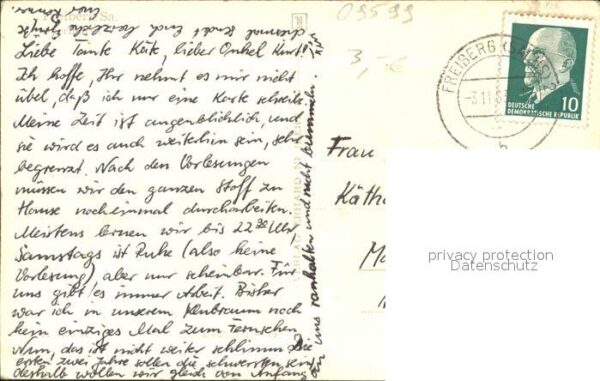 09599
3,-€
Freiberg Sa.
FREIBERG (SACHS)
DEUTSCHE
DEMOKRATISCHE REPUBLIK
10
Liebe Tante Käte, lieber Onkel Kurt!
Ich hoffe, Ihr nehmt es mir nicht
übel, daß ich nur eine Karte schreibe.
Meine Zeit ist augenblicklich, und
sie wird es auch weiterhin sein, sehr
begrenzt. Nach den Vorlesungen
müssen wir den ganzen Stoff zu
Hause noch einmal durcharbeiten.
Meistens lernen wir bis 22.30 Uhr
Samstags ist Ruhe (also keine
Vorlesung) aber nur scheinbar. Für
uns gibt es immer Arbeit. Bisher
war ich in unserem Klubraum noch
kein einziges Mal zum Fernsehen
Nun, das ist nicht weiter schlimm. Die
ersten zwei Jahre sollen die schwersten sein,
deshalb wollen wir gleich von Anfang
an uns ranhalten und nicht bummeln.
Frau
Käth
Ma
privacy protection
Datenschutz